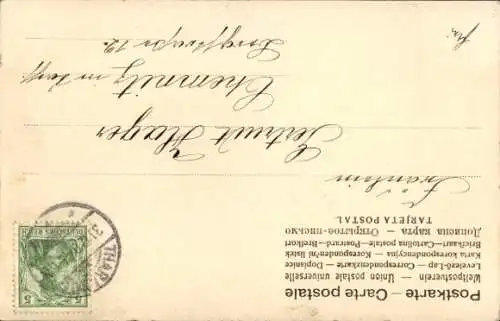 Postkarte — Carte postale
Weltpostverein — Union postale universelle
Levelező-Lap — Correspondenzkarte — Dopisnice
Karta korespondencyjna — Korespondenční lístek
Briefkaart—Cartolina postale—Postcard—Brefkort
Дописна карта — Открытое письмо
TARJETA POSTAL
Fräulein
Gertrud Hager
Chemnitz
12.
frei.
DEUTSCHES REICH
5 5
THAR